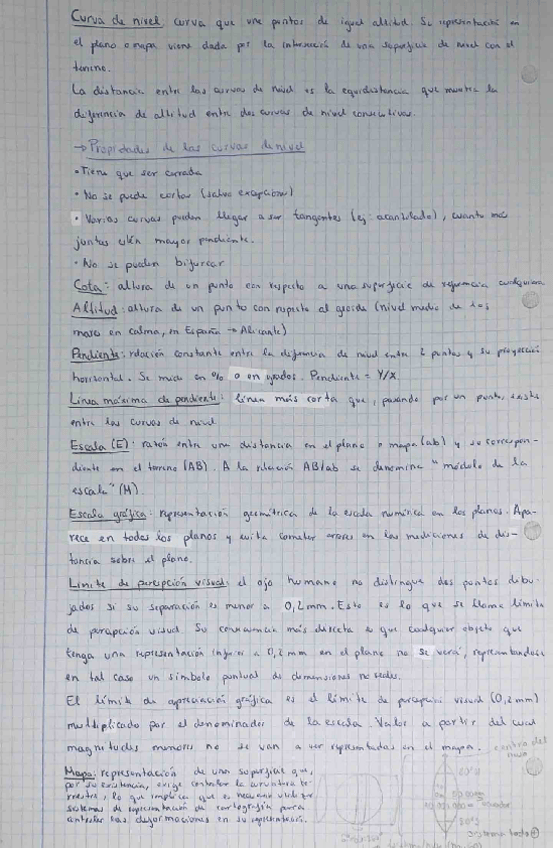 Curva de nivel: curva que une puntos de igual altitud. Su representación en
el plano o mapa viene dada por la intersección de una superficie de nivel con el
terreno.
La distancia entre las curvas de nivel es la equidistancia que muestra la
diferencia de altitud entre dos curvas de nivel consecutivas.
→ Propiedades de las curvas de nivel
• Tiene que ser cerrada
• No se puede cortar (salvo excepciones)
• Varias curvas pueden llegar a ser tangentes (ej: acantilado), cuanto más
juntas estén mayor pendiente.
• No se pueden bifurcar
Cota: altura de un punto con respecto a una superficie de referencia cualquiera
Altitud: altura de un punto con respecto al geoide (nivel medio de
mares en calma, en España → Alicante)
Pendiente: relación constante entre la diferencia de nivel entre 2 puntos y su proyección
horizontal. Se mide en % o en grados. Pendiente = Y/X
Línea máxima de pendiente: línea más corta que, pasando por un punto, existe
entre las curvas de nivel
Escala (E): razón entre una distancia en el plano o mapa (ab) y su correspon-
diente en el terreno (AB). A la relación AB/ab se denomina "módulo de la
escala" (M).
Escala gráfica: representación geométrica de la escala numérica en los planos. Apa-
rece en todos los planos y evita cometer errores en las mediciones de dis-
tancia sobre el plano.
Límite de percepción visual: el ojo humano no distingue dos puntos dibu-
jados si su separación es menor a 0,2 mm. Esto es lo que se llama límite
de percepción visual. Su consecuencia más directa es que cualquier objeto que
tenga una representación inferior a 0,2 mm en el plano no se verá, representandose
en tal caso un símbolo puntual de dimensiones no reales.
El límite de apreciación gráfica es el límite de percepción visual (0,2 mm)
multiplicado por el denominador de la escala. Valor a partir del cual
magnitudes menores no se van a ver representadas en el mapa.
Mapa: representación de una superficie que,
por su extensión, exige controlar la curvatura te-
rrestre, lo que implica que es necesario utilizar
sistemas de representación de cartografía para
controlar las deformaciones en su representación.